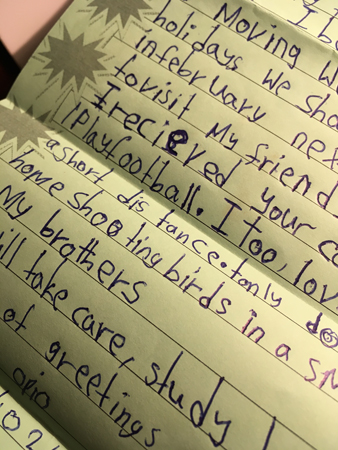 I be
Moving w
holidays We sha
infebruary nex
tovisit My friend
Irecieved your ca
iplayfootball. I too, lov
a short dis tance. tonly do
home shooting birds in a sm
My brothers
ill take care, study
of greetings
opio
102